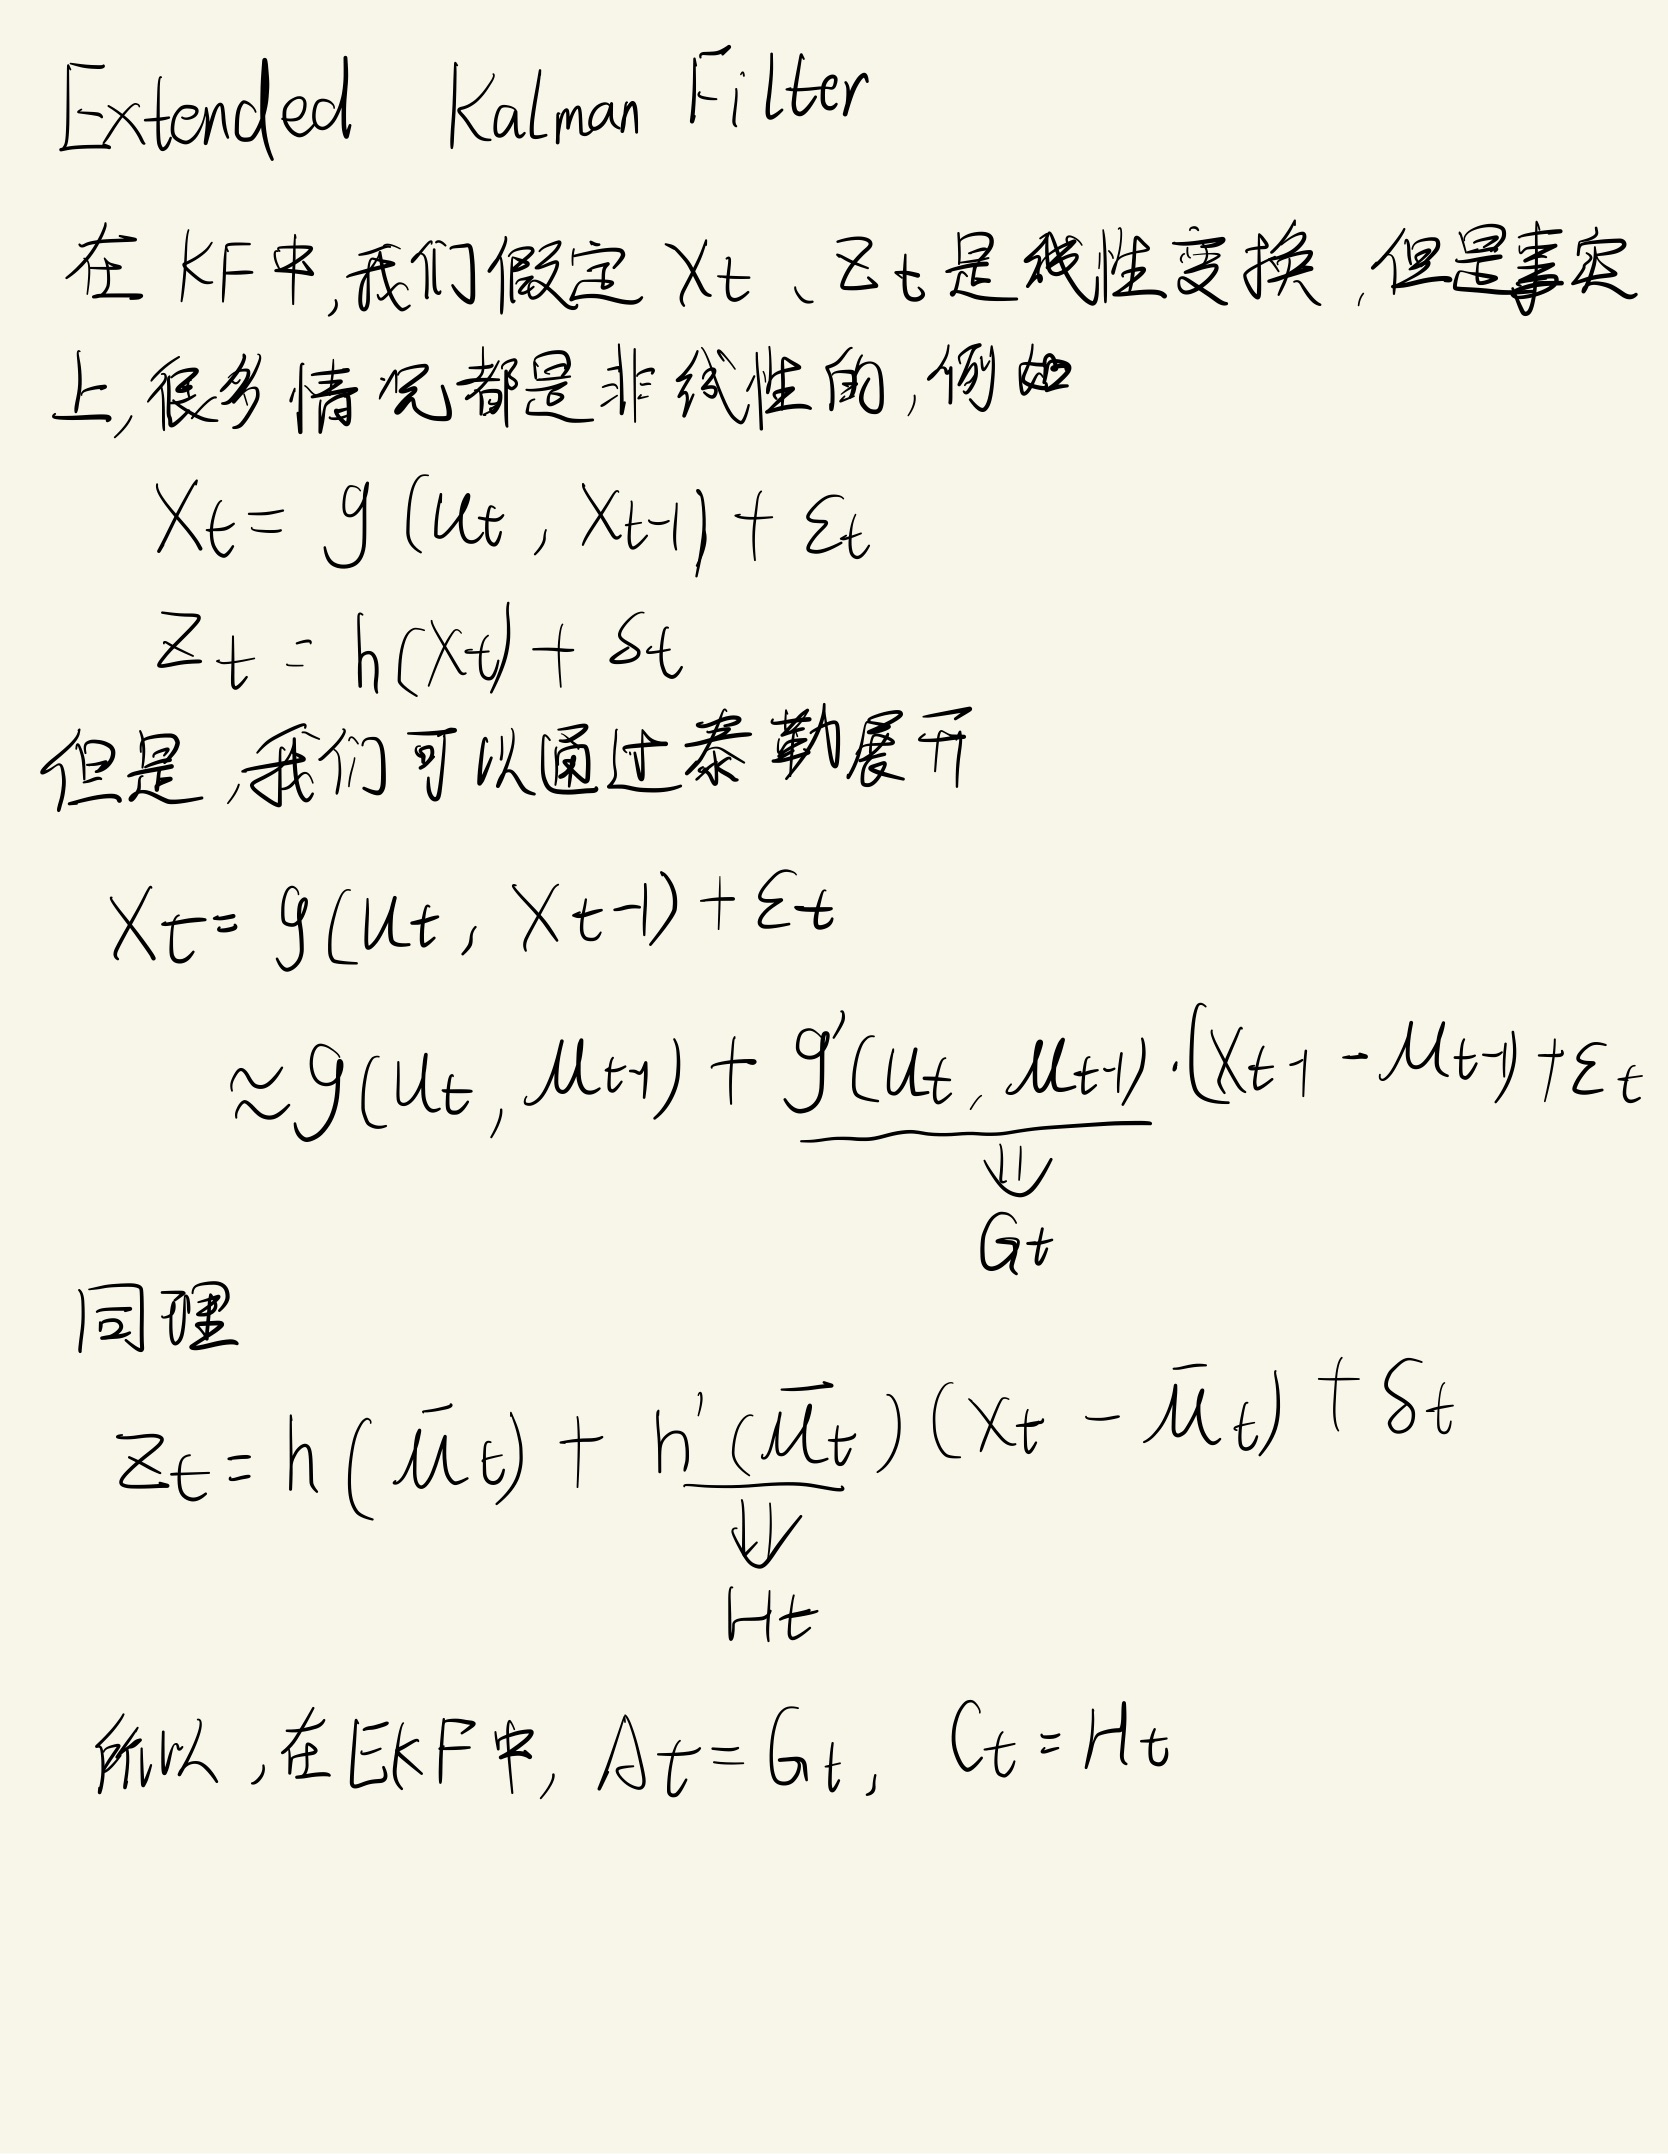 Extended Kalman Filter
在KF中,我们假定 Xt、Zt是线性变换,但是事实
上,很多情况都是非线性的,例如
Xt = g(ut, Xt-1) + εt
Zt = h(Xt) + δt
但是,我们可以通过泰勒展开
Xt = g(ut, Xt-1) + εt
≈ g(ut, μt-1) + g'(ut, μt-1)·(Xt-1 - μt-1) + εt
⇓
Gt
同理
Zt = h(μ̄t) + h'(μ̄t)(Xt - μ̄t) + δt
⇓
Ht
所以,在EKF中, At = Gt, Ct = Ht